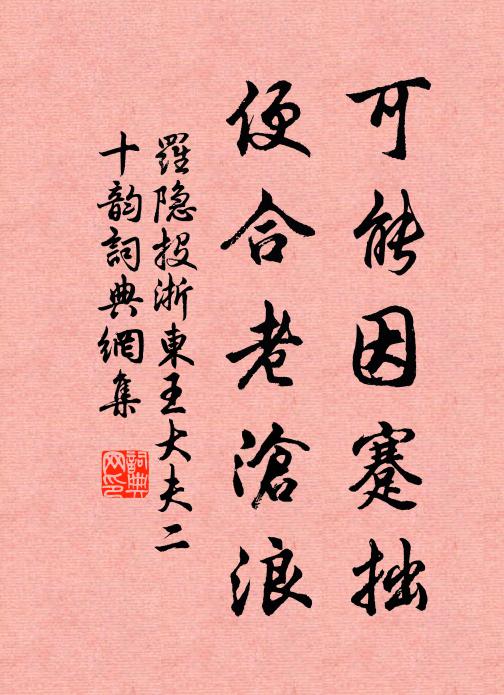 可能因蹇拙
便合老滄浪
羅隐投浙東王大夫二
十韵詞典網集
詞典网印